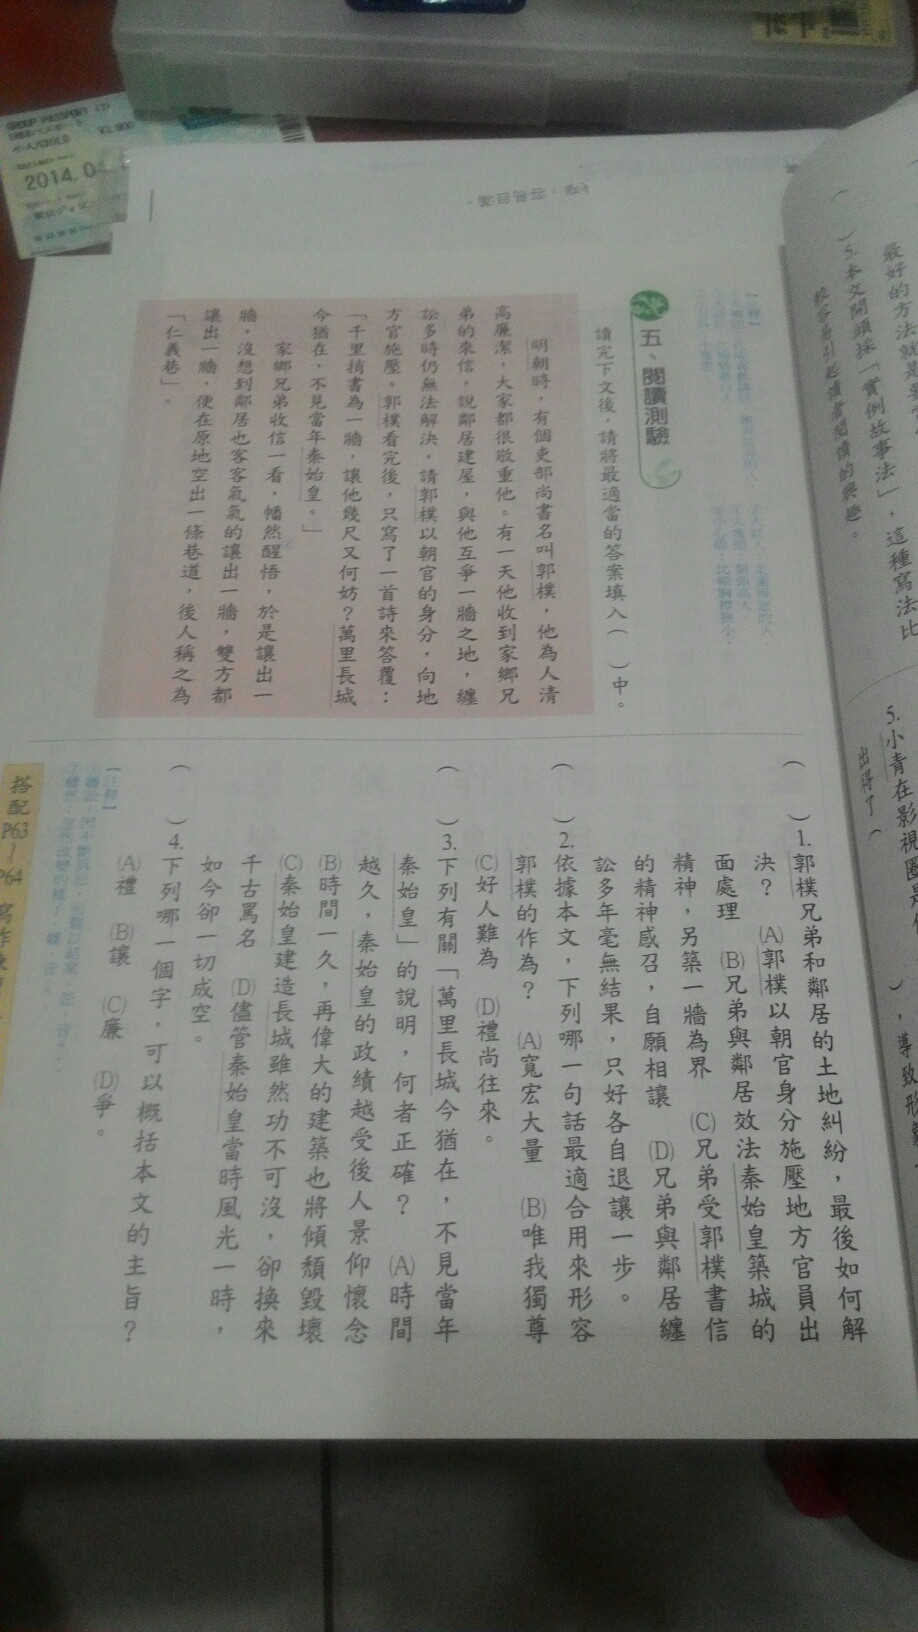 GROUP PASSPORT (1)
小人/CHILD
¥3,900
2014.04
容易自滿。
最好的方法就是
5.本文開頭採「實例故事法」，這種寫法比
較容易引起讀者閱讀的興趣。
五、閱讀測驗
讀完下文後，請將最適當的答案填入（　）中。
明朝時，有個吏部尚書名叫郭樸，他為人清
高廉潔，大家都很敬重他。有一天他收到家鄉兄
弟的來信，說鄰居建屋，與他互爭一牆之地，纏
訟多時仍無法解決，請郭樸以朝官的身分，向地
方官施壓。郭樸看完後，只寫了一首詩來答覆：
「千里捎書為一牆，讓他幾尺又何妨？萬里長城
今猶在，不見當年秦始皇。」
家鄉兄弟收信一看，幡然醒悟，於是讓出一
牆，沒想到鄰居也客客氣氣的讓出一牆，雙方都
讓出一牆，便在原地空出一條巷道，後人稱之為
「仁義巷」。
5.小青在影視圈是
出得了（
），導致形
（　）1.郭樸兄弟和鄰居的土地糾紛，最後如何解
決？　(A)郭樸以朝官身分施壓地方官員出
面處理　(B)兄弟與鄰居效法秦始皇築城的
精神，另築一牆為界　(C)兄弟受郭樸書信
的精神感召，自願相讓　(D)兄弟與鄰居纏
訟多年毫無結果，只好各自退讓一步。
（　）2.依據本文，下列哪一句話最適合用來形容
郭樸的作為？　(A)寬宏大量　(B)唯我獨尊
(C)好人難為　(D)禮尚往來。
（　）3.下列有關「萬里長城今猶在，不見當年
秦始皇」的說明，何者正確？　(A)時間
越久，秦始皇的政績越受後人景仰懷念
(B)時間一久，再偉大的建築也將傾頹毀壞
(C)秦始皇建造長城雖然功不可沒，卻換來
千古罵名　(D)儘管秦始皇當時風光一時，
如今卻一切成空。
（　）4.下列哪一個字，可以概括本文的主旨？
(A)禮　(B)讓　(C)廉　(D)爭。
【注釋】
搭配P63～P64